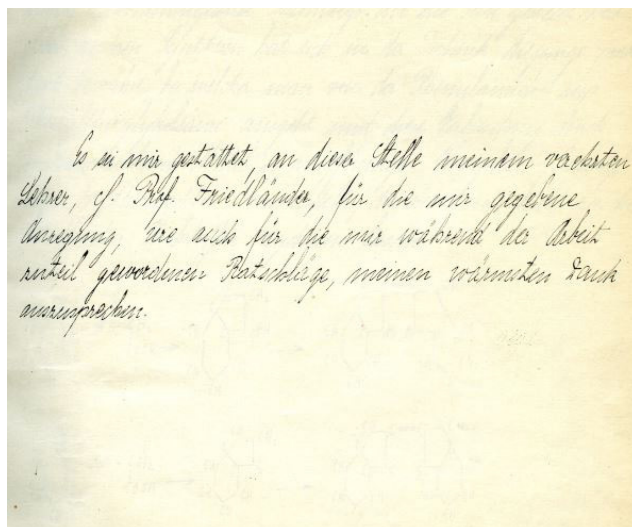 Es sei mir gestattet, an dieser Stelle meinem verehrten
Lehrer, H. Prof. Friedländer, für die mir gegebene
Anregung, wie auch für die mir während der Arbeit
zuteil gewordenen Ratschläge, meinen wärmsten Dank
auszusprechen.